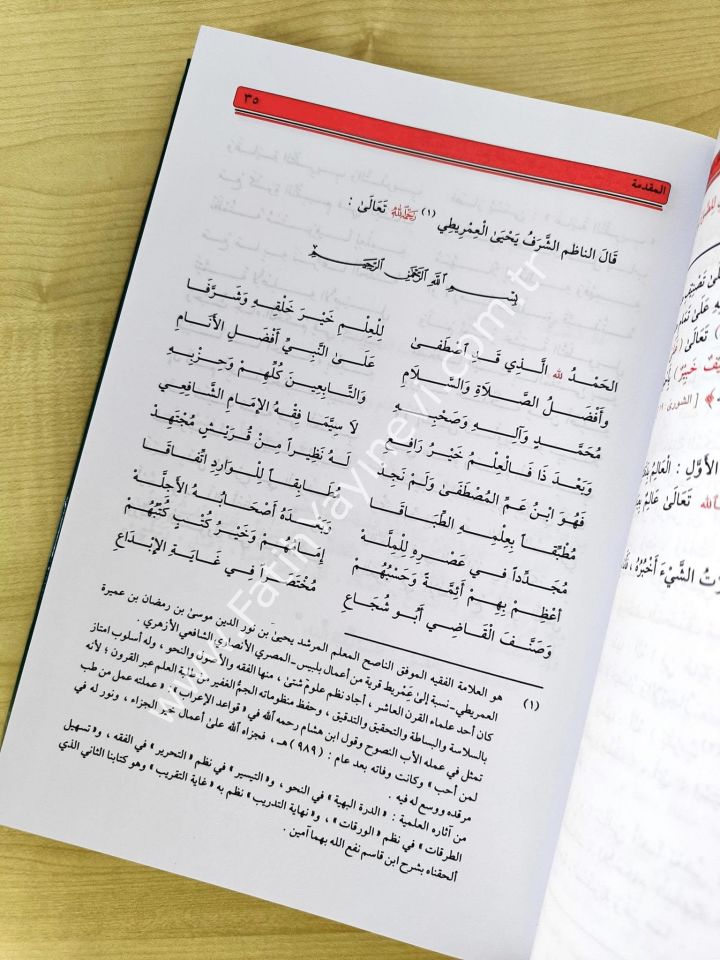 ٣٥
المقدمة
قَالَ الناظم الشَّرَفُ يَحْيَىٰ الْعِمْرِيطِي (١) رَحِمَهُ اللهُ تَعَالَىٰ :
بِسْمِ اللهِ الرَّحْمٰنِ الرَّحِيمِ
الحَمْدُ لله الَّذِي قَدِ اصْطَفَىٰ لِلعِلْمِ خَيْرَ خَلْقِهِ وَشَرَّفَا
وأَفْضَلُ الصَّلَاةِ وَالسَّلَامِ عَلَىٰ النَّبِيِّ أَفْضَلِ الأَنَامِ
مُحَمَّدٍ وَآلِهِ وَصَحْبِهِ وَالتَّابِعِينَ كُلِّهِمْ وَحِزْبِهِ
وَبَعْدَ ذَا فَالْعِلْمُ خَيْرُ رَافِعِ لَا سِيَّمَا فِقْهُ الإِمَامِ الشَّافِعِي
فَهْوَ ابْنُ عَمِّ المُصْطَفَىٰ وَلَمْ نَجِدْ لَهُ نَظِيراً مِنْ قُرَيْشٍ مُجْتَهِدْ
مُطَبِّقاً بِعِلْمِهِ الطِّبَاقَا مُطَابِقاً لِلْوَارِدِ اتِّفَاقَا
مُجَدِّداً في عَصْرِهِ لِلْمِلَّهْ وَبَعْدَهُ أَصْحَابُهُ الأَجِلَّهْ
أَعْظِمْ بِهِمْ أَئِمَّةً وَحَسْبُهُمْ إِمَامُهُمْ وَخَيْرُ كُتْبٍ كُتْبُهُمْ
وَصَنَّفَ الْقَاضِي أَبُو شُجَاعِ مُخْتَصَراً فِي غَايَةِ الإِبْدَاعِ
(١) هو العلامة الفقيه الموفق الناصح المعلم المرشد يحيىٰ بن نور الدين موسىٰ بن رمضان بن عميرة
العمريطي ـ نسبة إلىٰ عَمْريط قرية من أعمال بلبيس ـ المصري الأنصاري الشافعي الأزهري .
كان أحد علماء القرن العاشر ، أجاد نظم علومٌ شتىٰ ، منها الفقه والأصول والنحو ، وله أسلوب امتاز
بالسلاسة والبساطة والتحقيق والتدقيق ، وحفظ منظوماته الجمُّ الغفير من طلبة العلم عبر القرون ؛ لأنه
تمثل في عمله الأب النصوح وقول ابن هشام رحمه الله في « قواعد الإعراب » : « عملته عمل من طب
لمن أحب » وكانت وفاته بعد عام : ( ٩٨٩ ) هـ ، فجزاه الله علىٰ أعمال خير الجزاء ، ونور له في
مرقده ووسع له فيه .
من آثاره العلمية : « الدرة البهية » في النحو ، و« التيسير » في نظم « التحرير » في الفقه ، و« تسهيل
الطرقات » في نظم « الورقات » ، و« نهاية التدريب » نظم به « غاية التقريب » وهو كتابنا الثاني الذي
ألحقناه بشرح ابن قاسم نفع الله بهما آمين .
[ الشورى :
الأَوَّلِ : الْعَالِمُ
تَعَالَىٰ عَالِمٌ
الشَّيْءَ أَخْبُرُهُ ،
www.FatihYayinevi.com.tr